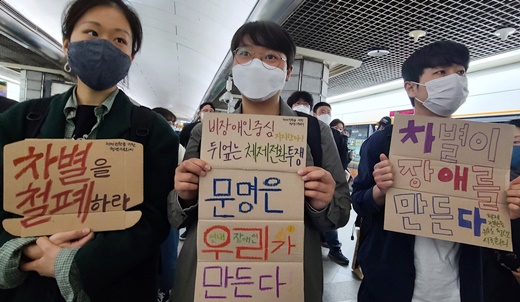 차별을
철폐하라
비장애인중심
뒤엎는 체제전환투쟁
문명은
우리가
만든다
차별이
장애를
만든다